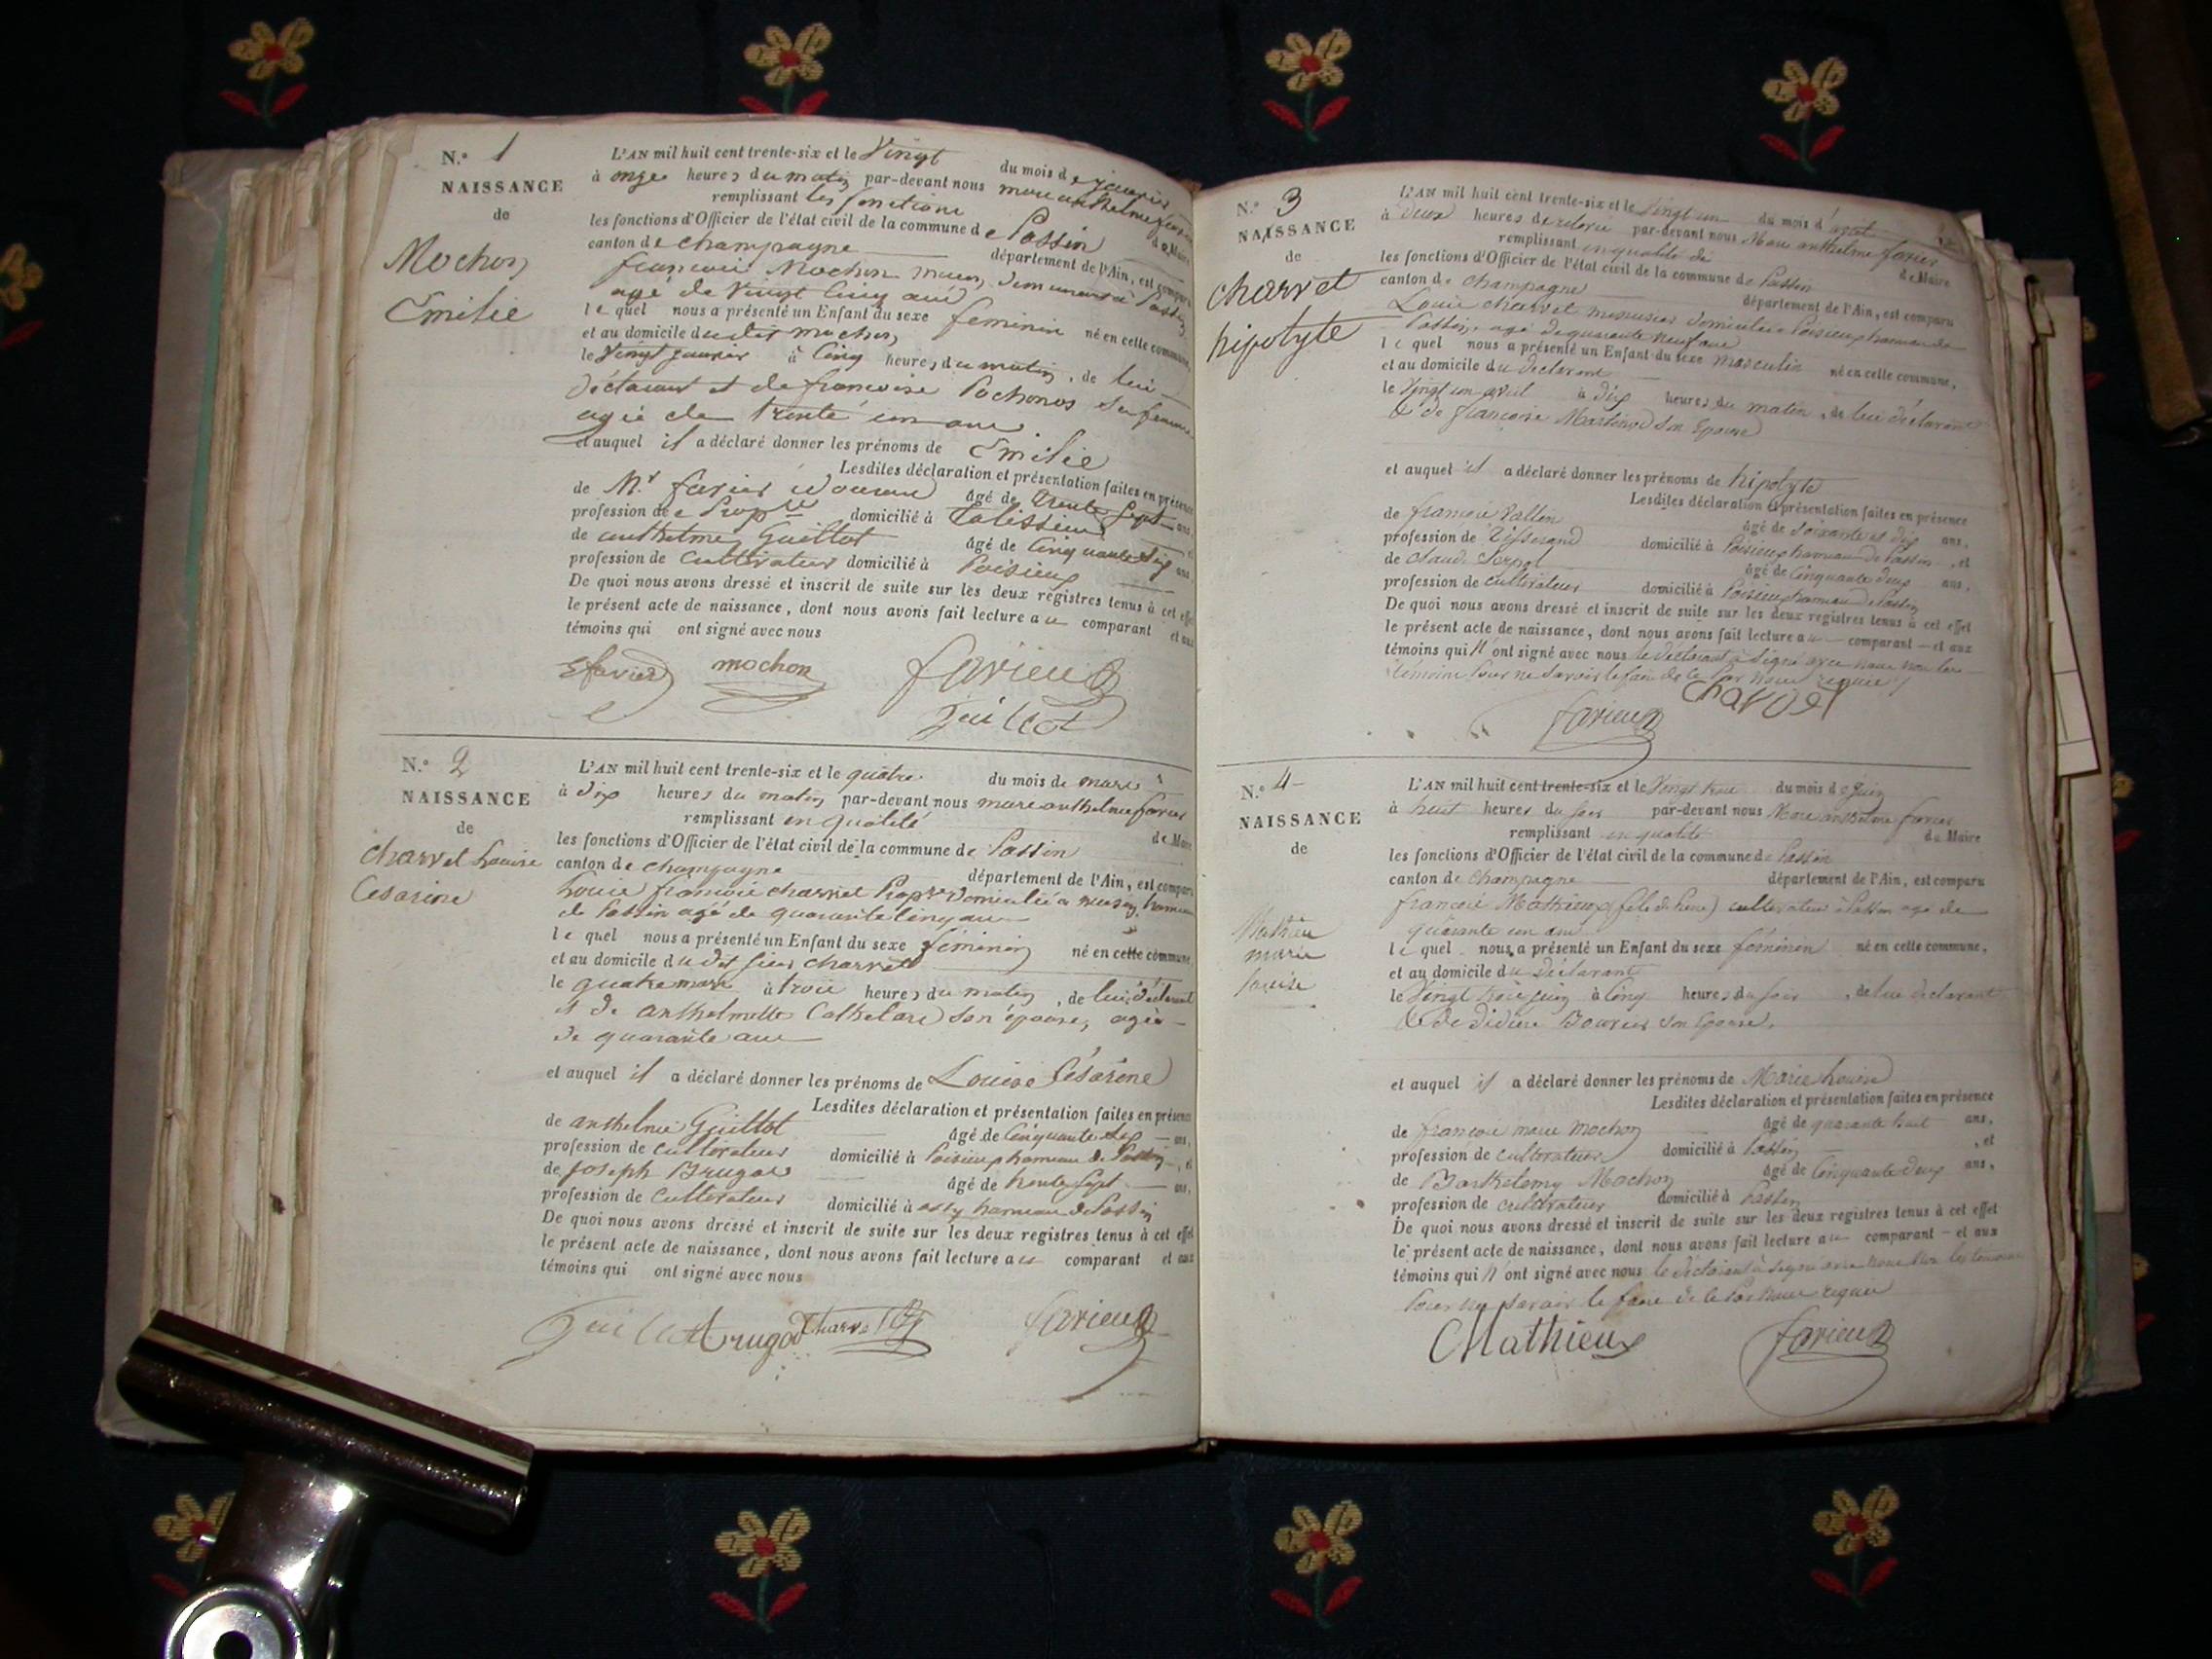 N.º 1
NAISSANCE
de
Mochon
Emilie
L'AN mil huit cent trente-six et le Vingt du mois de janvier
à onze heures du matin par-devant nous marc anthelme favier
remplissant les fonctions de Maire
les fonctions d'Officier de l'état civil de la commune de Passin
canton de champagne département de l'Ain, est comparu
françois Mochon maçon demeurant à Passin
agé de vingt cinq ans
le quel nous a présenté un Enfant du sexe feminin né en cette commune,
et au domicile du dit mochon
le Vingt janvier à cinq heures du matin, de lui
déclarant et de francoise Pochonos sa femme
agée de trente un ans
et auquel il a déclaré donner les prénoms de Emilie
Lesdites déclaration et présentation faites en présence
de Mr favier âgé de trente sept ans,
profession de Propre domicilié à Talissieu
de anthelme Guillot âgé de Cinquante six ans,
profession de Cultivateur domicilié à Poisieux
De quoi nous avons dressé et inscrit de suite sur les deux registres tenus à cet effet
le présent acte de naissance, dont nous avons fait lecture au comparant et aux
témoins qui ont signé avec nous
favier mochon favier
guillot
N.º 2
NAISSANCE
de
Charvet Louise
Cesarine
L'AN mil huit cent trente-six et le quatre du mois de mars
à dix heures du matin par-devant nous marc anthelme favier
remplissant en qualité de Maire
les fonctions d'Officier de l'état civil de la commune de Passin
canton de champagne département de l'Ain, est comparu
Louis françois charvet Propre domicilié a hameau
de Passin agé de quarante cinq ans
le quel nous a présenté un Enfant du sexe féminin né en cette commune,
et au domicile du dit sieur charvet
le quatre mars à trois heures du matin, de lui déclarant
et de anthelmette son épouse, agée
de quarante ans
et auquel il a déclaré donner les prénoms de Louise Césarine
Lesdites déclaration et présentation faites en présence
de anthelme Guillot âgé de Cinquante six ans,
profession de cultivateur domicilié à Poisieux hameau de Passin, et
de joseph Brugod âgé de trente sept ans,
profession de Cultivateur domicilié à hameau de Passin
De quoi nous avons dressé et inscrit de suite sur les deux registres tenus à cet effet
le présent acte de naissance, dont nous avons fait lecture au comparant et aux
témoins qui ont signé avec nous
Guillot Brugod Charvet favier
N.º 3
NAISSANCE
de
charvet
hipolyte
L'AN mil huit cent trente-six et le vingt un du mois d'avril
à deux heures de relevée par-devant nous Marc anthelme favier
remplissant en qualité de de Maire
les fonctions d'Officier de l'état civil de la commune de Passin
canton de champagne département de l'Ain, est comparu
Louis charvet menuisier domicilié à Poisieux hameau de
Passin, agé de quarante neuf ans
le quel nous a présenté un Enfant du sexe masculin né en cette commune,
et au domicile du déclarant
le Vingt un avril à dix heures du matin, de lui déclarant
& de françoise Martinod son Epouse
et auquel il a déclaré donner les prénoms de hipolyte
Lesdites déclaration et présentation faites en présence
de françois Vallin âgé de soixante et dix ans,
profession de Tisserand domicilié à Poisieux hameau de Passin, et
de Claude âgé de Cinquante deux ans,
profession de cultivateur domicilié à Poisieux hameau de Passin
De quoi nous avons dressé et inscrit de suite sur les deux registres tenus à cet effet
le présent acte de naissance, dont nous avons fait lecture au comparant et aux
témoins qui n'ont signé avec nous le déclarant a signé avec nous non les
témoins pour ne savoir le faire de ce par nous requis
charvet
favier
N.º 4
NAISSANCE
de
Mathieu
marie
louise
L'AN mil huit cent trente-six et le Vingt trois du mois de juin
à huit heures du soir par-devant nous Marc anthelme favier
remplissant en qualité du Maire
les fonctions d'Officier de l'état civil de la commune de Passin
canton de champagne département de l'Ain, est comparu
françois Mathieux (fils de ) cultivateur à Passin agé de
quarante un ans
le quel nous a présenté un Enfant du sexe féminin né en cette commune,
et au domicile du déclarant
le Vingt trois juin à cinq heures du soir, de lui déclarant
& de Didière Bouvier son Epouse,
et auquel il a déclaré donner les prénoms de Marie Louise
Lesdites déclaration et présentation faites en présence
de françois marie mochon âgé de quarante huit ans,
profession de cultivateur domicilié à Passin, et
de Barthelemy Mochon âgé de Cinquante deux ans,
profession de cultivateur domicilié à Passin
De quoi nous avons dressé et inscrit de suite sur les deux registres tenus à cet effet
le présent acte de naissance, dont nous avons fait lecture au comparant et aux
témoins qui n'ont signé avec nous le déclarant a signé avec nous non les temoins
pour ne savoir le faire de ce par nous requis
Mathieux favier